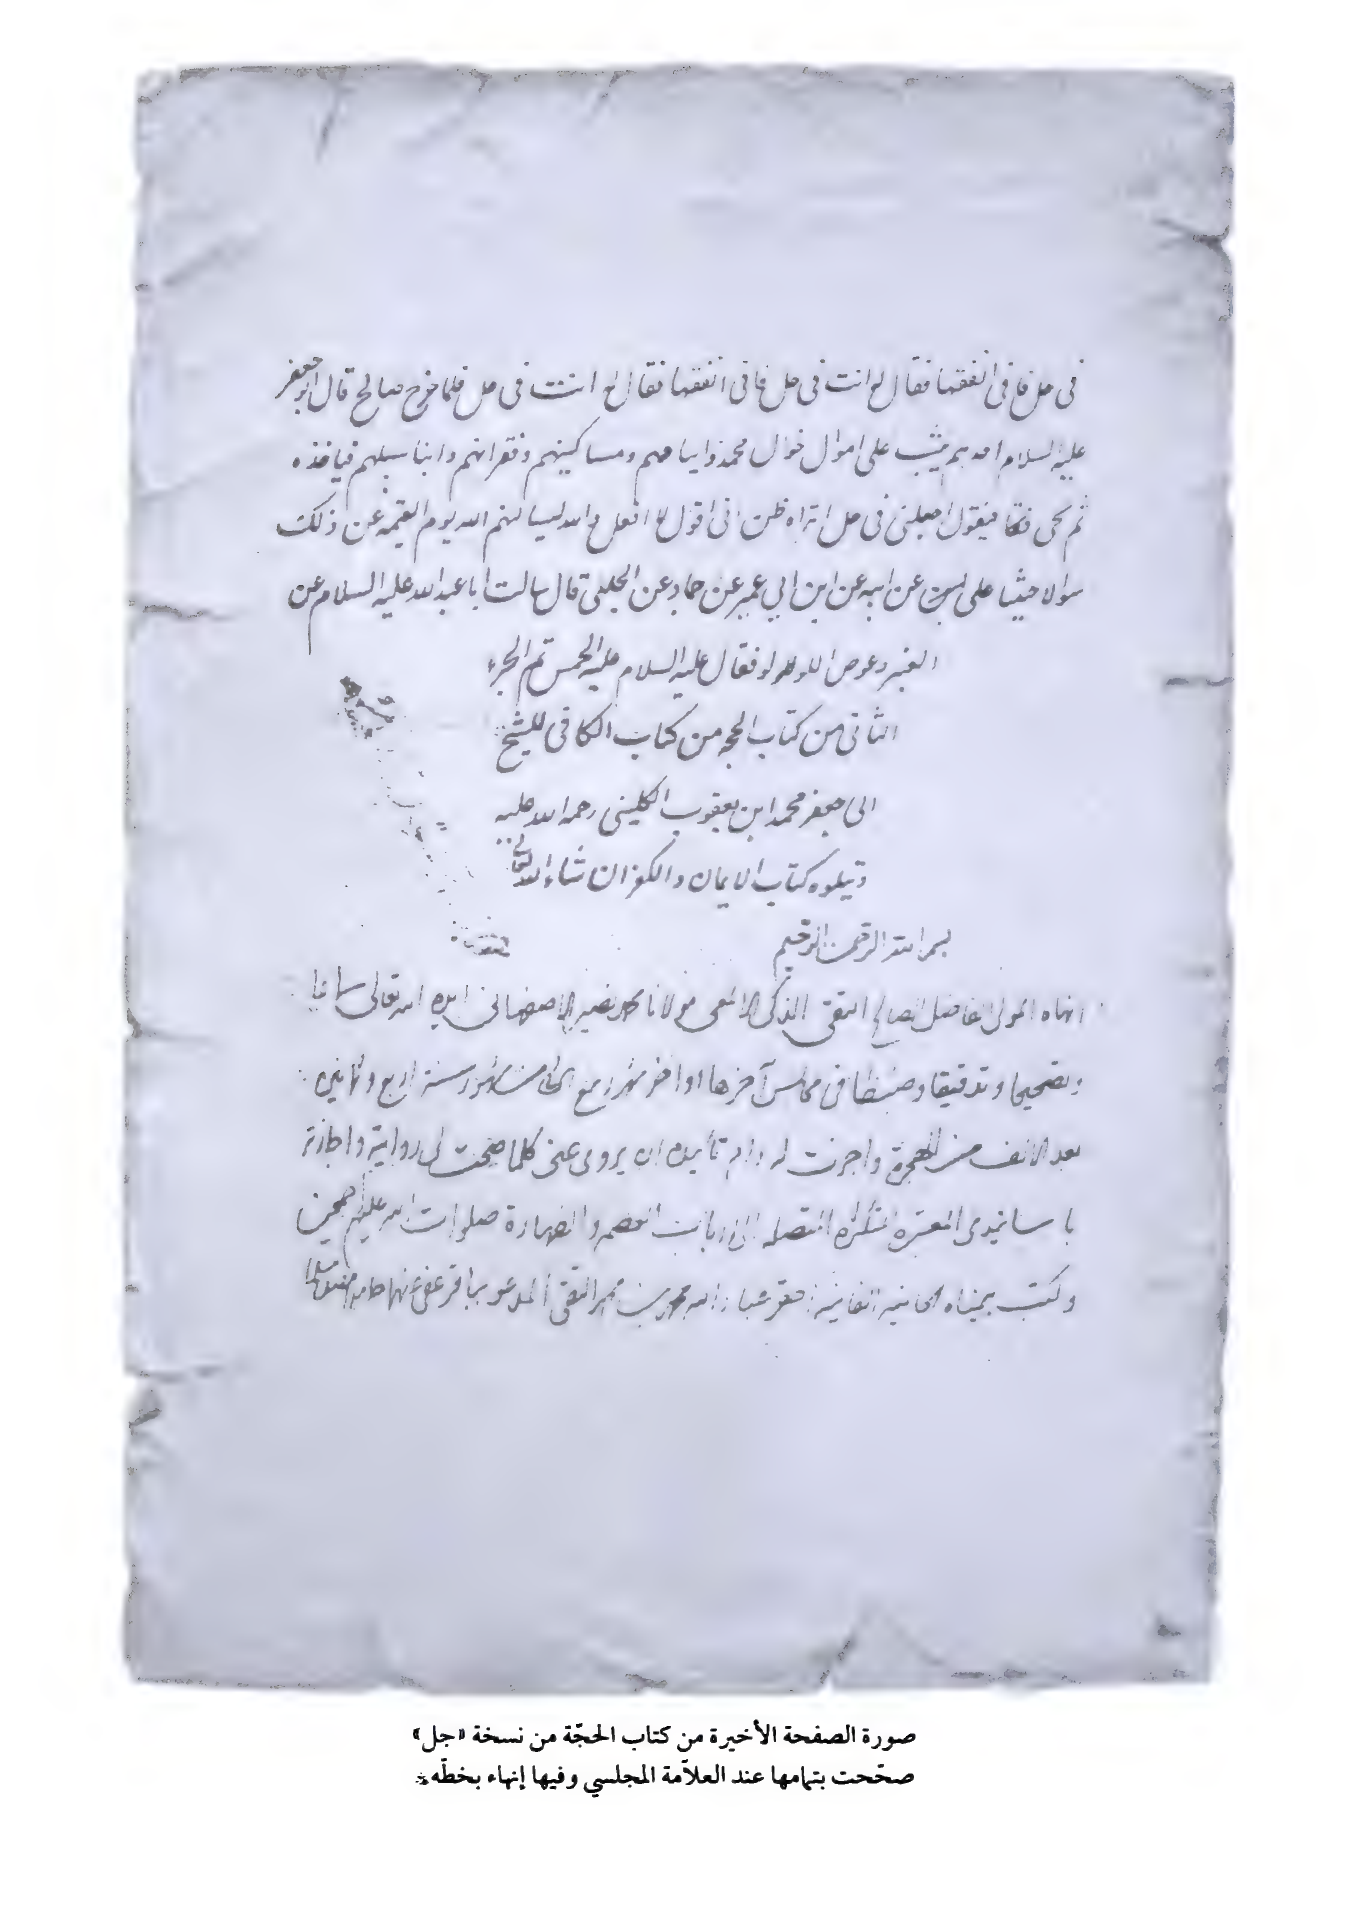 فى حل فانى انفقتها فقال له انت فى حل فانى انفقتها فقال له انت فى حل فلما خرج صالح قال ابو جعفر
عليه السلام احدهم يثب على اموال محمد وايتامهم ومساكينهم وفقرائهم وابناء سبيلهم فياخذه
ثم يجىء فيقول اجعلنى فى حل اتراه ظن انى اقول لا افعل والله ليسالنهم الله يوم القيمة عن ذلك
سؤالا حثيثا على بن عن ابيه عن ابن ابي عمير عن حماد عن الحلبى قال سالت ابا عبد الله عليه السلام عن
العنبر وغوص اللؤلؤ فقال عليه السلام عليه الخمس تم الجزء
الثانى من كتاب الحجه من كتاب الكافى للشيخ
ابى جعفر محمد ابن يعقوب الكلينى رحمه الله عليه
ويتلوه كتاب الايمان والكفر ان شاء الله تعالى
بسم الله الرحمن الرحيم
انهاه المولى الفاضل الصالح التقى الذكى الالمعى مولانا محمد نصير الاصفهانى ايده الله تعالى سماعا
وتصحيحا وتدقيقا وضبطا فى مجالس آخرها اواخر شهر ربيع سنة اربع وثمانين
بعد الالف من الهجرة واجزت له دام تأييده ان يروى عنى كلما صحت لى روايته واجازته
باسانيدى المتكثرة المتصله الى ارباب العصمه والطهارة صلوات الله عليهم اجمعين
وكتب بيمناه الجانية الفانية احقر عباد الله محمد بن محمد التقى المدعو بباقر عفى عنهما حامدا مصليا مسلما
صورة الصفحة الأخيرة من كتاب الحجّة من نسخة «جل»
صحّحت بتمامها عند العلاّمة المجلسي وفيها إنهاء بخطّه